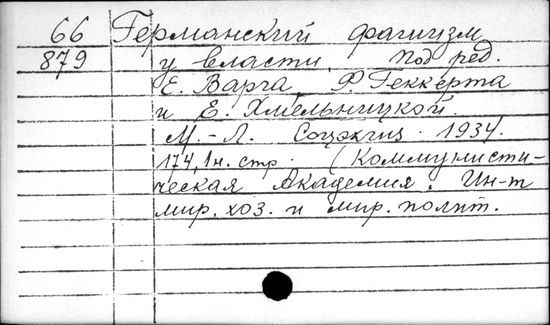 66 Германский фашизм
879 у власти. Под ред.
Е. Варга, Ф. Геккерта
и Е. Хмельницкой.
М.-Л. Соцэкгиз. 1934.
174,1н. стр. (Коммунисти-
ческая Академия. Ин-т
мир. хоз. и мир. полит.